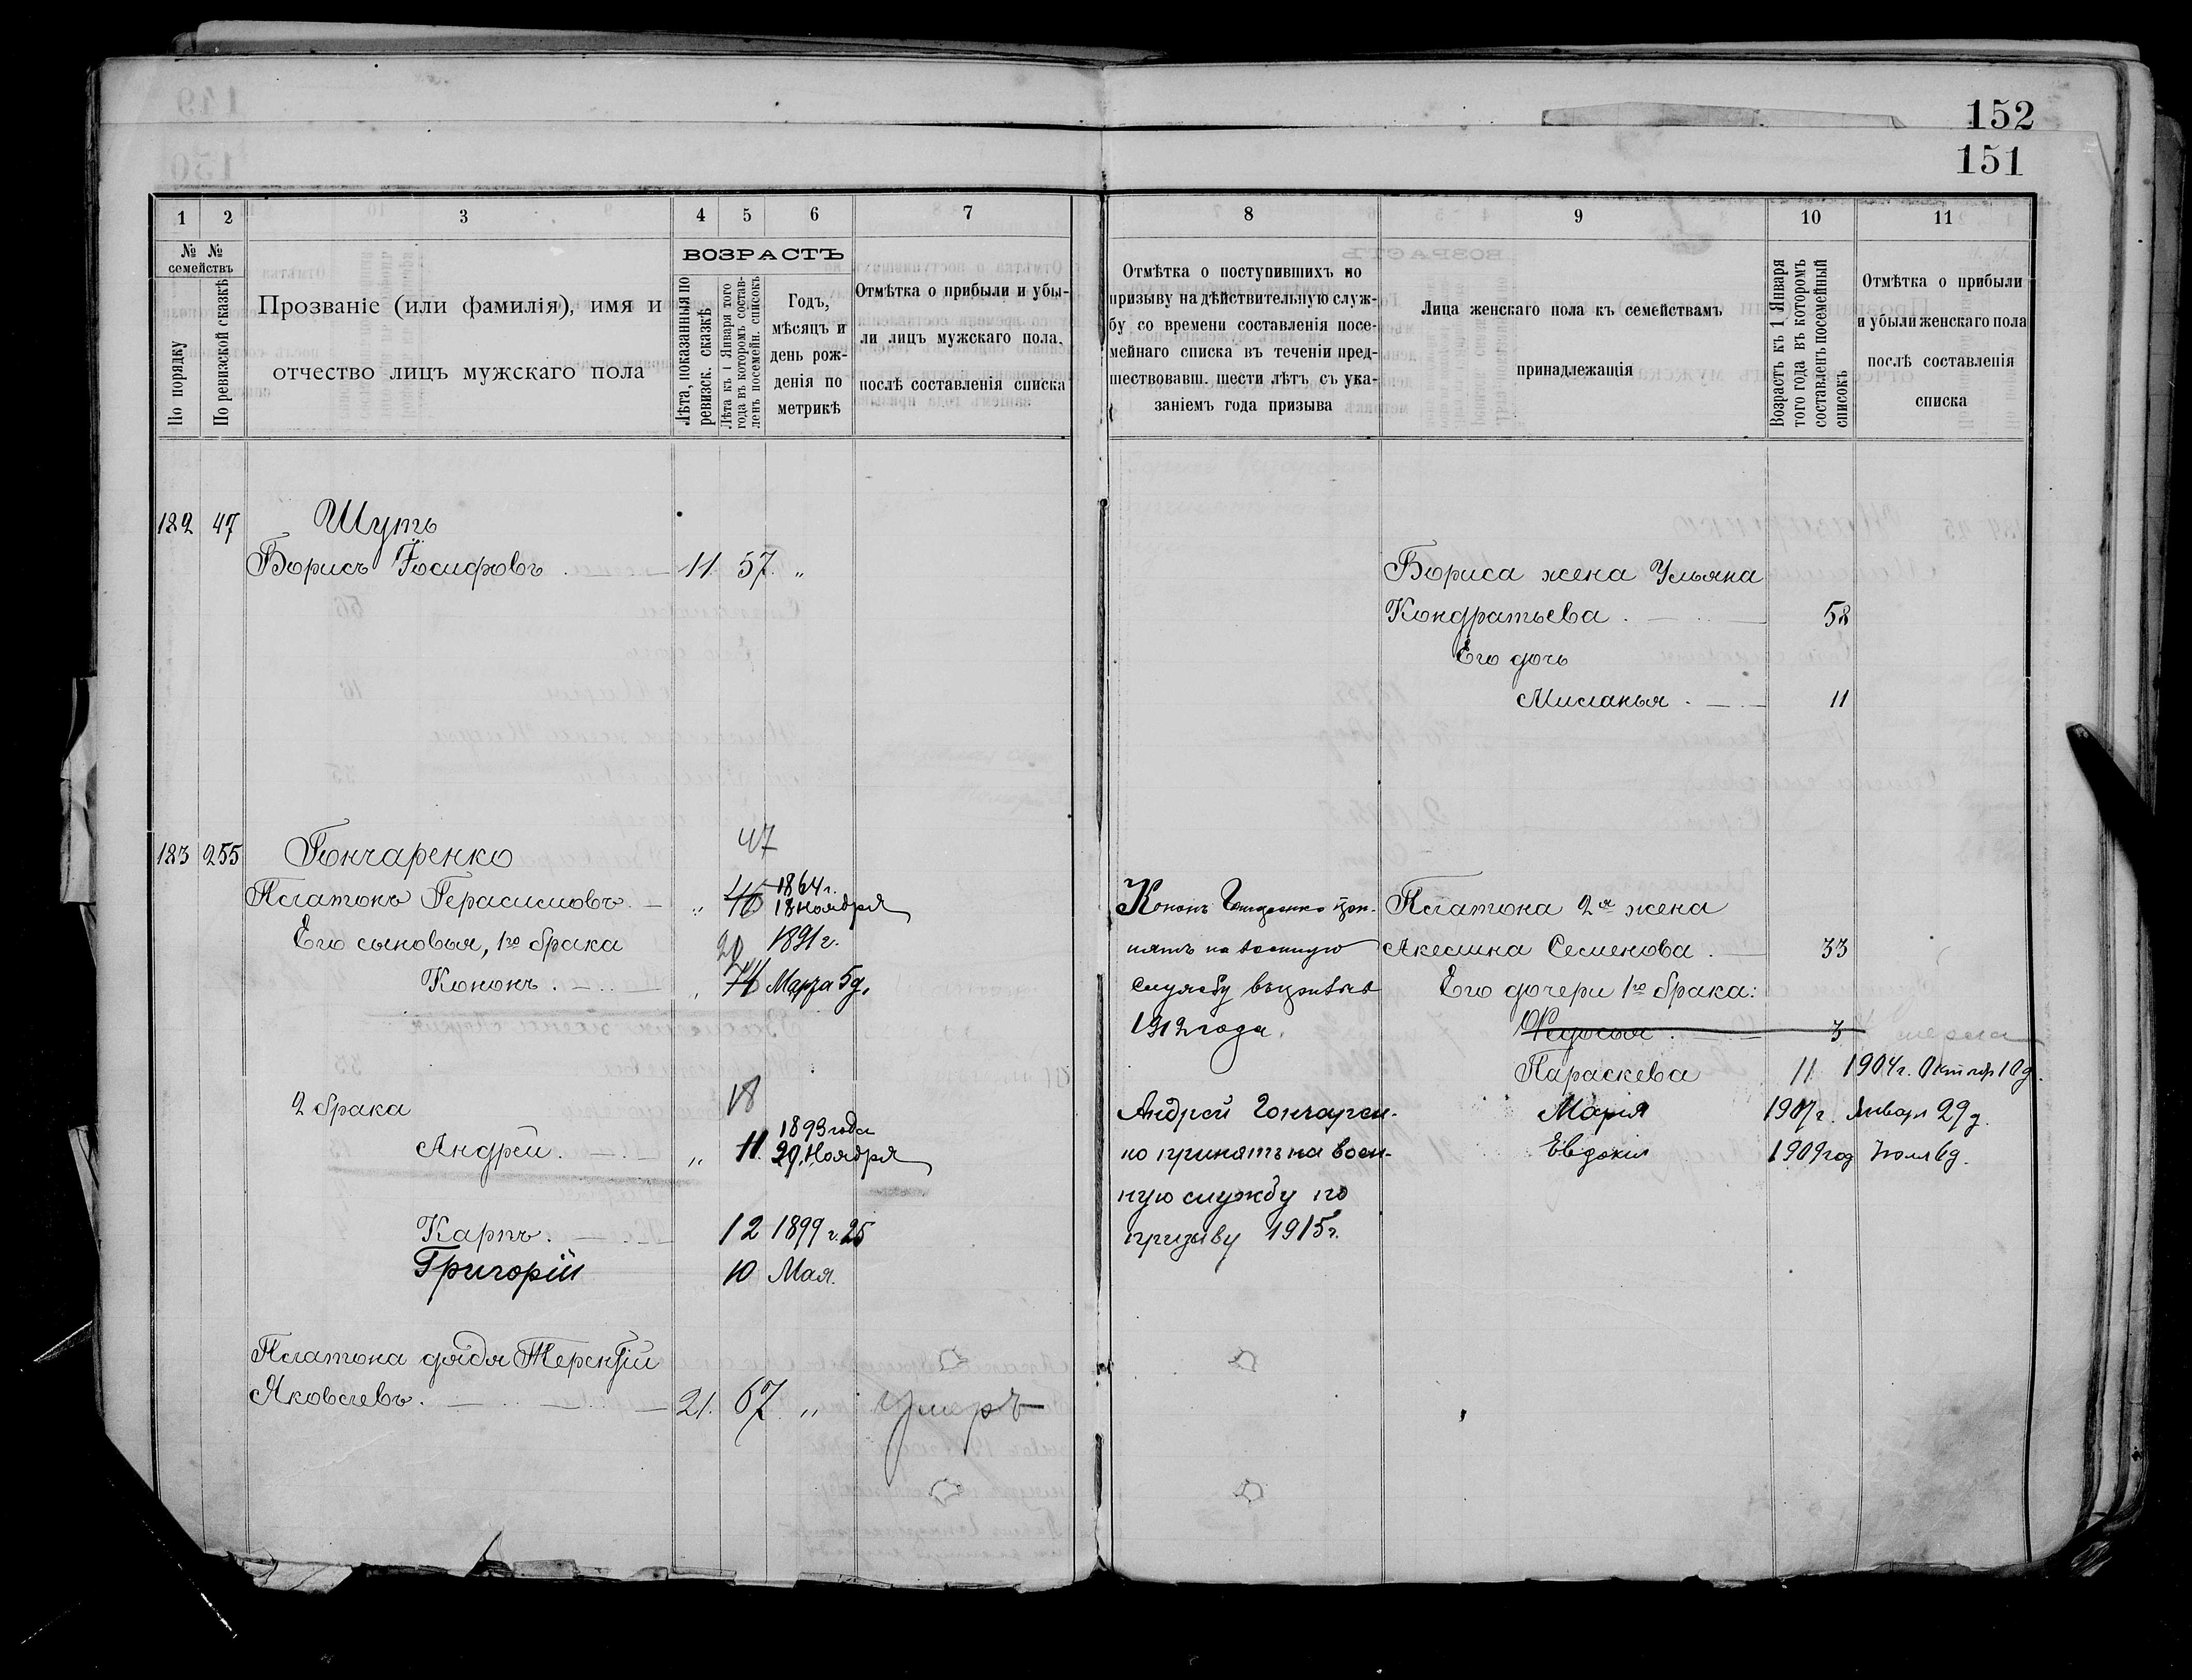 152
151
1 2 3 4 5 6 7
№ № семействъ
По порядку
По ревизской сказкѣ
Прозваніе (или фамилія), имя и
отчество лицъ мужскаго пола
ВОЗРАСТЪ
Лѣта, показанныя по
ревизск. сказкѣ
Лѣта къ 1 Января того
года въ которомъ состав-
ленъ посемейн. списокъ
Годъ,
мѣсяцъ и
день рож-
денія по
метрикѣ
Отмѣтка о прибыли и убы-
ли лицъ мужскаго пола,
послѣ составленія списка
182 47 Шутъ
Борисъ Іосифовъ 11. 57. „
183 255 Гончаренко 47
Платонъ Герасимовъ „ 46 1864 г. 18 Ноября
Его сыновья, 1го брака 20 1891 г.
Кононъ Марта 5 д.
2 брака 18
1893 года
Андрей „ 11. 29. Ноября
Карпъ. 12 1899 г. 25
Григорій 10 Мая.
Платона дядя Терентій
Яковлевъ. 21. 67. „ Умеръ
8 9 10 11
Отмѣтка о поступившихъ по
призыву на дѣйствительную служ-
бу со времени составленія посе-
мейнаго списка въ теченіи пред-
шествовавш. шести лѣтъ съ ука-
заніемъ года призыва
Лица женскаго пола къ семействамъ
принадлежащія
Возрастъ къ 1 Января
того года въ которомъ
составленъ посемейный
списокъ
Отмѣтка о прибыли
и убыли женскаго пола
послѣ составленія
списка
Бориса жена Ульяна
Кондратьева. 58
Его дочь
Миланья. 11
Кононъ Гончаренко при-
нятъ на военную
службу въ призывъ
1912 года.
Андрей Гончарен-
ко принятъ на воен-
ную службу по
призыву 1915 г.
Платона 2я жена
Акелина Семенова. 33
Его дочери 1го брака:
Федосья. 3 умерла
Параскева 11 1904 г. Октябр 10 д.
Марія 1907 г. Января 29 д.
Евдокія 1909 год Іюля 6 д.